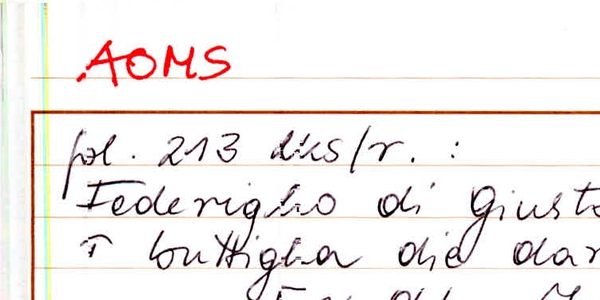 AOMS
fol. 213 dks/r. :
Federigho di Giusto
I buttigha die dar